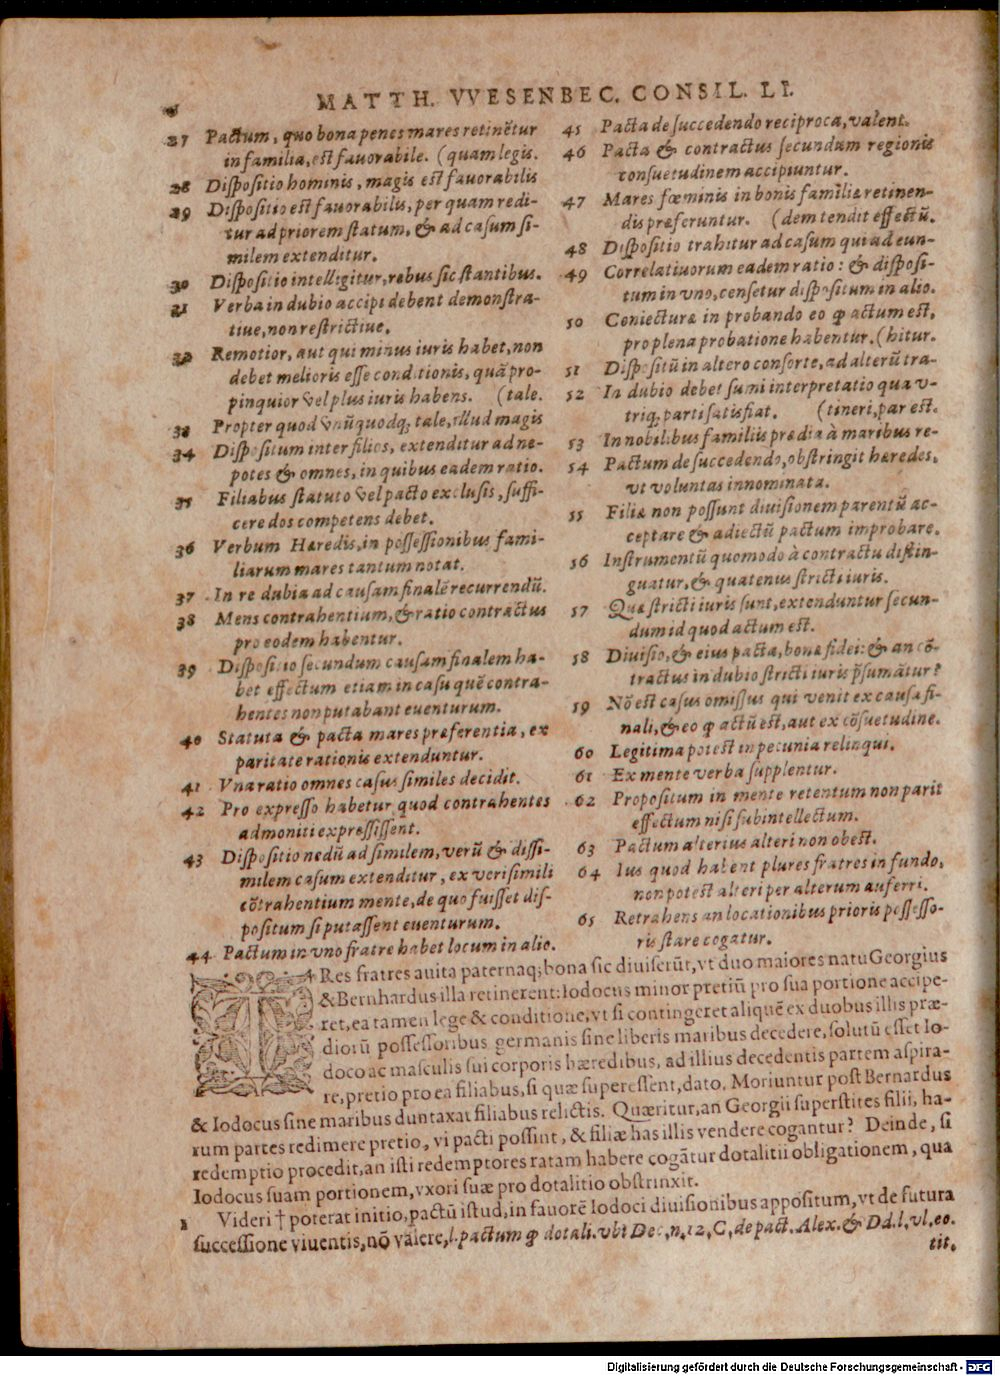 MATTH. VVESENBEC. CONSIL. LI.
27 Pactum, quo bona penes mares retinētur
in familia, est fauorabile. (quam legis.
28 Dispositio hominis, magis est fauorabilis
29 Dispositio est fauorabilis, per quam redi-
tur ad priorem statum, & ad casum si-
milem extenditur.
30 Dispositio intelligitur, rebus sic stantibus.
31 Verba in dubio accipi debent demonstra-
tiue, non restrictiue.
32 Remotior, aut qui minus iuris habet, non
debet melioris esse conditionis, quā pro-
pinquior vel plus iuris habens. (tale.
33 Propter quod vnūquodq; tale, illud magis
34 Dispositum inter filios, extenditur ad ne-
potes & omnes, in quibus eadem ratio.
35 Filiabus statuto vel pacto exclusis, suffi-
cere dos competens debet.
36 Verbum Hæredis, in possessionibus fami-
liarum mares tantum notat.
37 In re dubia ad causam finalē recurrendū.
38 Mens contrahentium, & ratio contractus
pro eodem habentur.
39 Dispositio secundum causam finalem ha-
bet effectum etiam in casu quē contra-
hentes non putabant euenturum.
40 Statuta & pacta mares præferentia, ex
paritate rationis extenduntur.
41 Vna ratio omnes casus similes decidit.
42 Pro expresso habetur quod contrahentes
admoniti expressissent.
43 Dispositio nedū ad similem, verū & dissi-
milem casum extenditur, ex verisimili
cōtrahentium mente, de quo fuisset dis-
positum si putassent euenturum.
44 Pactum in vno fratre habet locum in alio.
45 Pacta de succedendo reciproca, valent.
46 Pacta & contractus secundum regionis
consuetudinem accipiuntur.
47 Mares fœminis in bonis familiæ retinen-
dis præferuntur. (dem tendit effectū.
48 Dispositio trahitur ad casum qui ad eun-
49 Correlatiuorum eadem ratio: & disposi-
tum in vno, censetur dispositum in alio.
50 Coniecturæ in probando eo ꝙ actum est,
pro plena probatione habentur. (hitur.
51 Dispositū in altero consorte, ad alterū tra-
52 In dubio debet sumi interpretatio qua v-
triq; parti satisfiat. (tineri, par est.
53 In nobilibus familiis prædia à maribus re-
54 Pactum de succedendo, obstringit hæredes,
vt voluntas innominata.
55 Filiæ non possunt diuisionem parentū ac-
ceptare & adiectū pactum improbare.
56 Instrumentū quomodo à contractu distin-
guatur, & quatenus stricti iuris.
57 Quæ stricti iuris sunt, extenduntur secun-
dum id quod actum est.
58 Diuisio, & eius pacta, bonæ fidei: & an cō-
tractus in dubio stricti iuris p̄sumātur?
59 Nō est casus omissus qui venit ex causa fi-
nali, & eo ꝙ actū est, aut ex cōsuetudine.
60 Legitima potest in pecunia relinqui.
61 Ex mente verba supplentur.
62 Propositum in mente retentum non parit
effectum nisi subintellectum.
63 Pactum alterius alteri non obest.
64 Ius quod habent plures fratres in fundo,
non potest alteri per alterum auferri.
65 Retrahens an locationibus prioris possesso-
ris stare cogatur.
TRes fratres auita paternaq; bona sic diuiserūt, vt duo maiores natu Georgius
& Bernhardus illa retinerent: Iodocus minor pretiū pro sua portione accipe-
ret, ea tamen lege & conditione, vt si contingeret aliquē ex duobus illis præ-
diorū possessoribus germanis sine liberis maribus decedere, solutū esset Io-
doco ac masculis sui corporis hæredibus, ad illius decedentis partem aspira-
re, pretio pro ea filiabus, si quæ superessent, dato. Moriuntur post Bernardus
& Iodocus sine maribus duntaxat filiabus relictis. Quæritur, an Georgii superstites filii, ha-
rum partes redimere pretio, vi pacti possint, & filiæ has illis vendere cogantur? Deinde, si
redemptio procedit, an isti redemptores ratam habere cogātur dotalitii obligationem, qua
Iodocus suam portionem, vxori suæ pro dotalitio obstrinxit.
1 Videri † poterat initio, pactū istud, in fauorē Iodoci diuisionibus appositum, vt de futura
successione viuentis, nō valere, l. pactum ꝙ dotali. vbi Dec. n. 12. C. de pact. Alex. & Dd. l. vl. eo.
tit.
Digitalisierung gefördert durch die Deutsche Forschungsgemeinschaft - DFG